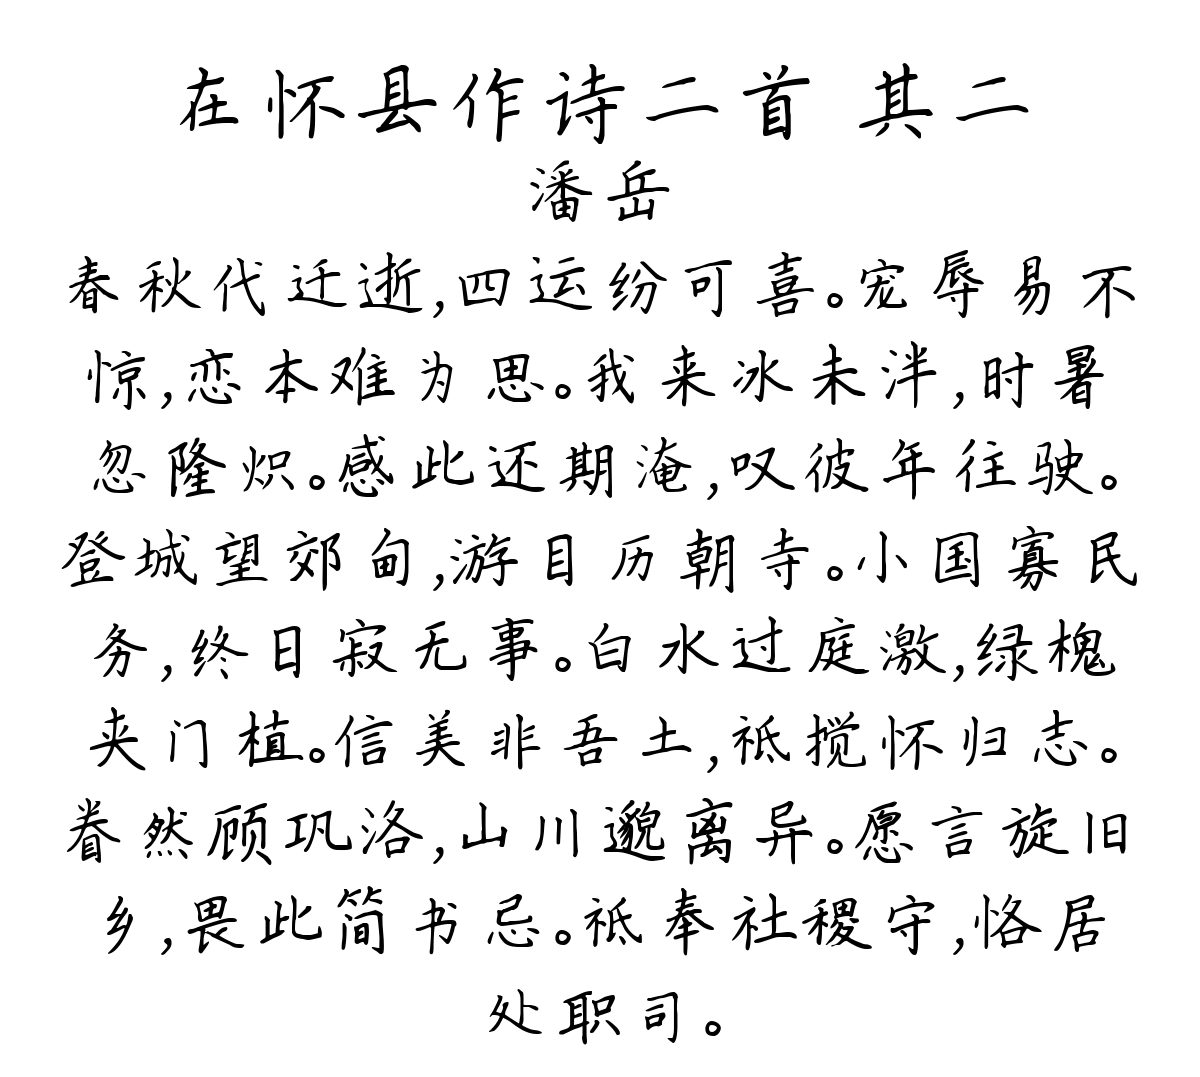 在怀县作诗二首 其二
潘岳
春秋代迁逝,四运纷可喜。宠辱易不
惊,恋本难为思。我来冰未泮,时暑
忽隆炽。感此还期淹,叹彼年往驶。
登城望郊甸,游目历朝寺。小国寡民
务,终日寂无事。白水过庭激,绿槐
夹门植。信美非吾土,祗搅怀归志。
眷然顾巩洛,山川邈离异。愿言旋旧
乡,畏此简书忌。祗奉社稷守,恪居
处职司。